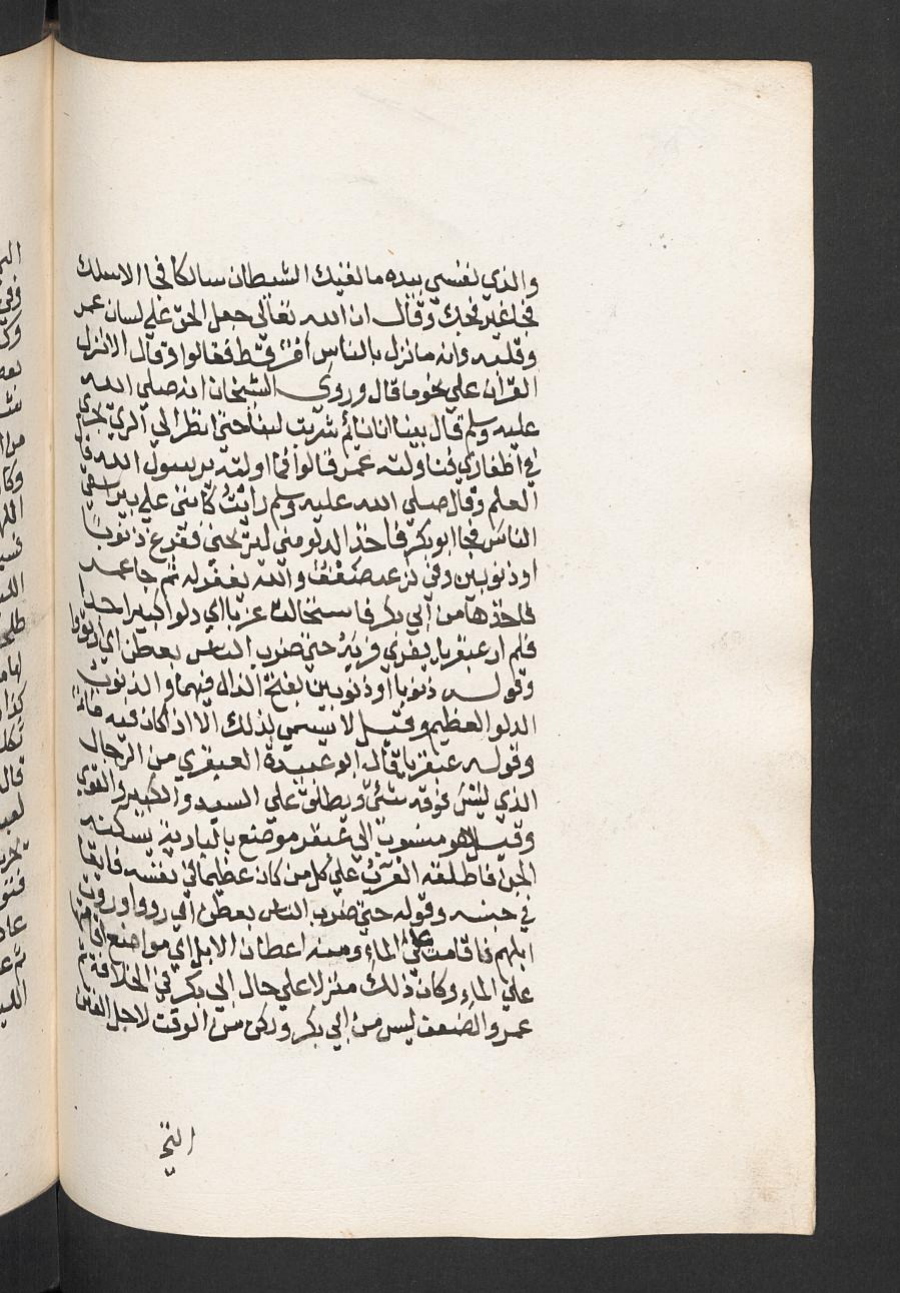 والذي نفسي بيده مالقيك الشيطان سالكا فجا الاسلك
فجا غير فجك وقال ان الله تعالى جعل الحق على لسان عمر
وقلبه وانه مانزل بالناس امر قط فقالوا وقال الانزل
القران على نحو ما قال وروى الشيخان انه صلى الله
عليه وسلم قال بينا انا نايم شربت لبنا حتى انظر الى الري يجري
في اظفاري فناولته عمر قالوا فما اولته يرسول الله قا
العلم وقال صلى الله عليه وسلم رايت كانني على بير اسقي
الناس فجا ابو بكر فاخذ الدلو مني ليريحني فنزع ذنوبا
او ذنوبين وفي نزعه ضعف والله يغفر له ثم جا عمر
فاخذها من ابي بكر فاستحالت غربا اي دلوا كبيرا جدا
فلم ار عبقريا يفري فريه حتى ضرب الناس بعطن اي ارتووا
وقوله ذنوبا او ذنوبين بفتح الذال فيهما والذنوب
الدلو العظيم وقيل لا يسمي بذلك الا اذا كان فيه ماء
وقوله عبقريا قال ابو عبيدة العبقري من الرجال
الذي ليس فوقه شئ ويطلق على السيد والكبير والقوي
وقيل هو منسوب الى عبقر موضع بالبادية يسكنه
الجن فاطلقه العرب على كل من كان عظيما في نفسه فايقا
في جنسه وقوله حتى ضرب الناس بعطن اي رووا ورويت
ابلهم فاقامت على الماء ومنه اعطان الابل اي مواضع اقامتها
على الماء وكان ذلك منزلا على حال ابي بكر في الخلافة ثم
عمر والضعف ليس من ابي بكر ولكن من الوقت لاجل الفتن
التي